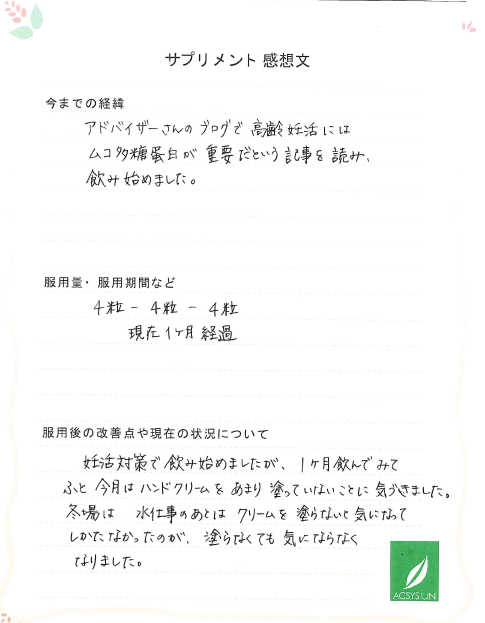 サプリメント 感想文
今までの経緯
アドバイザーさんのブログで 高齢妊活には
ムコ多糖蛋白が 重要だという記事を読み、
飲み始めました。
服用量・服用期間など
4粒 - 4粒 - 4粒
現在1ヶ月経過
服用後の改善点や現在の状況について
妊活対策で飲み始めましたが、1ヶ月飲んでみて
ふと 今月はハンドクリームを あまり 塗っていないことに 気づきました。
冬場は 水仕事のあとは クリームを 塗らないと気になって
しかたなかったのが、塗らなくても 気にならなく
なりました。
ACSYS UN